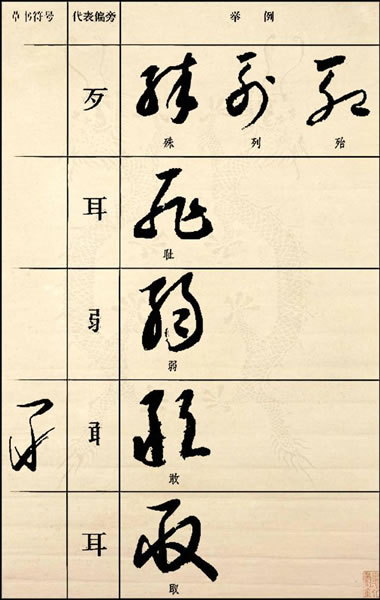 草书符号 代表偏旁 举例
歹
殊 列 殆
耳
耻
弱
敢
耳
取